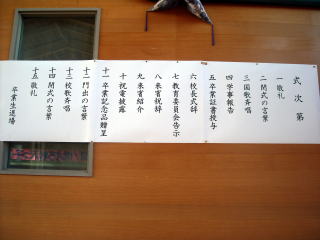 式次第
一 敬礼
二 開式の言葉
三 国歌斉唱
四 学事報告
五 卒業証書授与
六 校長式辞
七 教育委員会告示
八 来賓祝辞
九 来賓紹介
十 祝電披露
十一 卒業記念品贈呈
十二 門出の言葉
十三 校歌斉唱
十四 閉式の言葉
十五 敬礼
卒業生退場